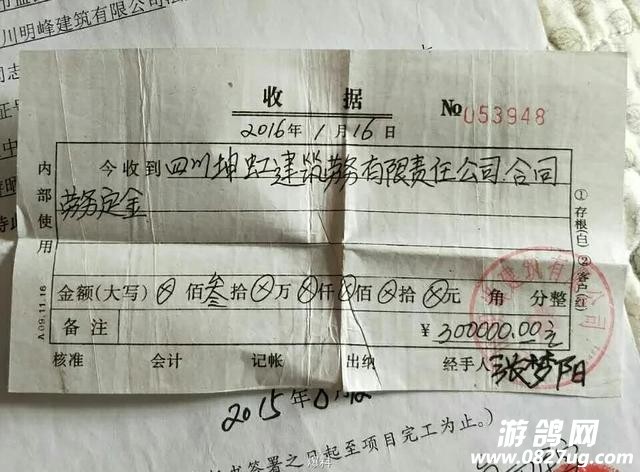 川明峰建筑有限公司
收据
№ 053948
2016年1月16日
内部使用
今收到四川坤虹建筑劳务有限责任公司合同
劳务定金
金额(大写)⊗佰叁拾⊗万⊗仟⊗佰⊗拾⊗元 角 分整
备注 ¥300000.00元
核准 会计 记帐 出纳 经手人 张梦阳
①存根(白) ②客户(红)
A 09.11.16
建筑有限公司
2015年
签署之日起至项目完工为止。)
游鸽网
www.0827ug.com